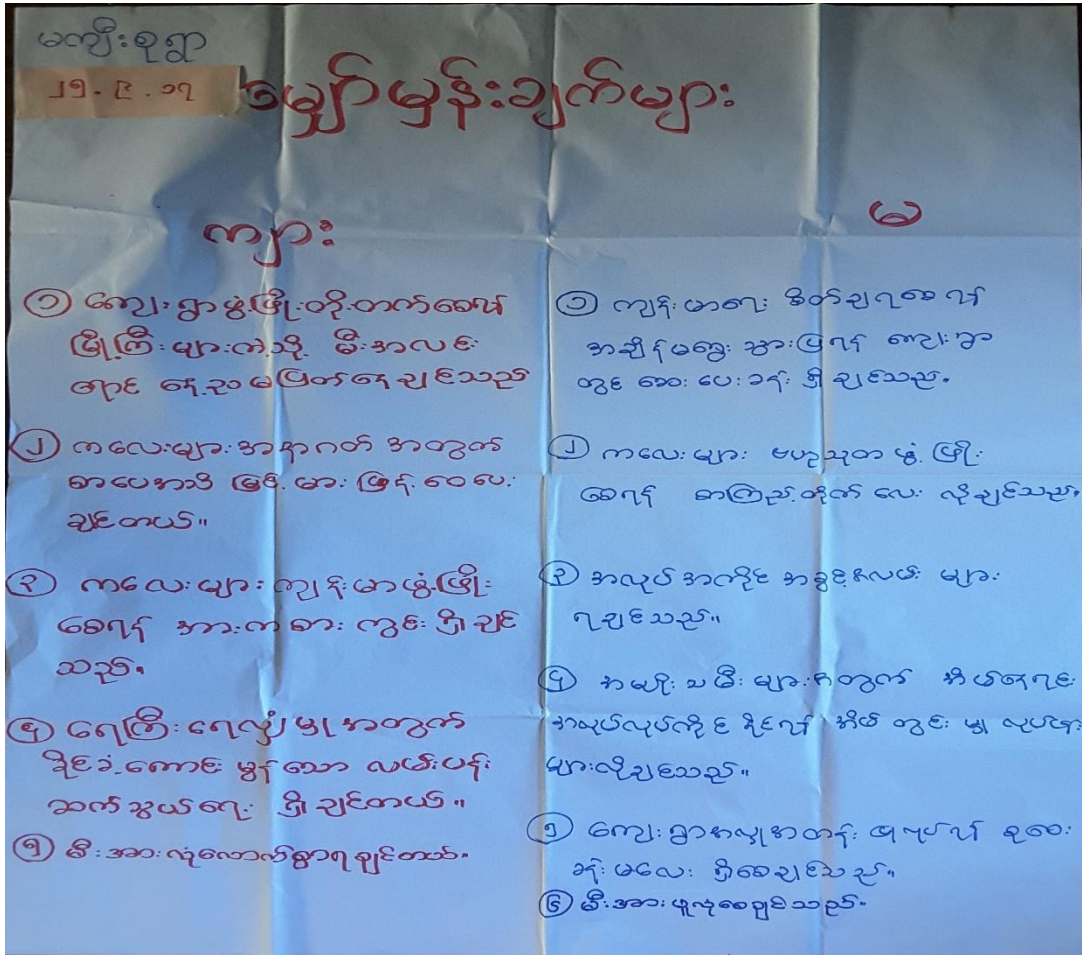 မကျီးစုရွာ
၂၅.၉.၁၇
မျှော်မှန်းချက်များ
ကျား
၁ ကျေးရွာဖွံ့ဖြိုးတိုးတက်စေရန်
မြို့ကြီးများကဲ့သို့ မီးအလင်း
ရောင် နေ့ညမပြတ်နေချင်သည်
၂ ကလေးများအနာဂတ် အတွက်
စာပေအသိ မြင့်မားဖြန့်ဝေပေး
ချင်တယ်။
၃ ကလေးများကျန်းမာဖွံ့ဖြိုး
စေရန် အားကစားကွင်းရှိချင်
သည်။
၄ ရေကြီးရေလျှံမှုအတွက်
ခိုင်ခံ့ကောင်းမွန်သော လမ်းပန်း
ဆက်သွယ်ရေး ရှိချင်တယ်။
၅ မီးအားလုံလောက်စွာရချင်တယ်။
မ
၁ ကျန်းမာရေး စိတ်ချရစေရန်
အချိန်မရွေးသွားပြရန် ကျေးရွာ
တွင် ဆေးပေးခန်းရှိချင်သည်။
၂ ကလေးများ ဗဟုသုတဖွံ့ဖြိုး
စေရန် စာကြည့်တိုက်လေး လိုချင်သည်။
၃ အလုပ်အကိုင်အခွင့်အလမ်းများ
ရချင်သည်။
၄ အမျိုးသမီးများအတွက် အိမ်နေရင်း
အလုပ်လုပ်ကိုင်နိုင်ရန် အိမ်တွင်းမှုလုပ်ငန်း
များလိုချင်သည်။
၅ ကျေးရွာအလှူအတန်းပြုလုပ်ရန် စုဝေး
ခန်းမလေး ရှိစေချင်သည်။
၆ မီးအားယူလုစေချင်သည်။